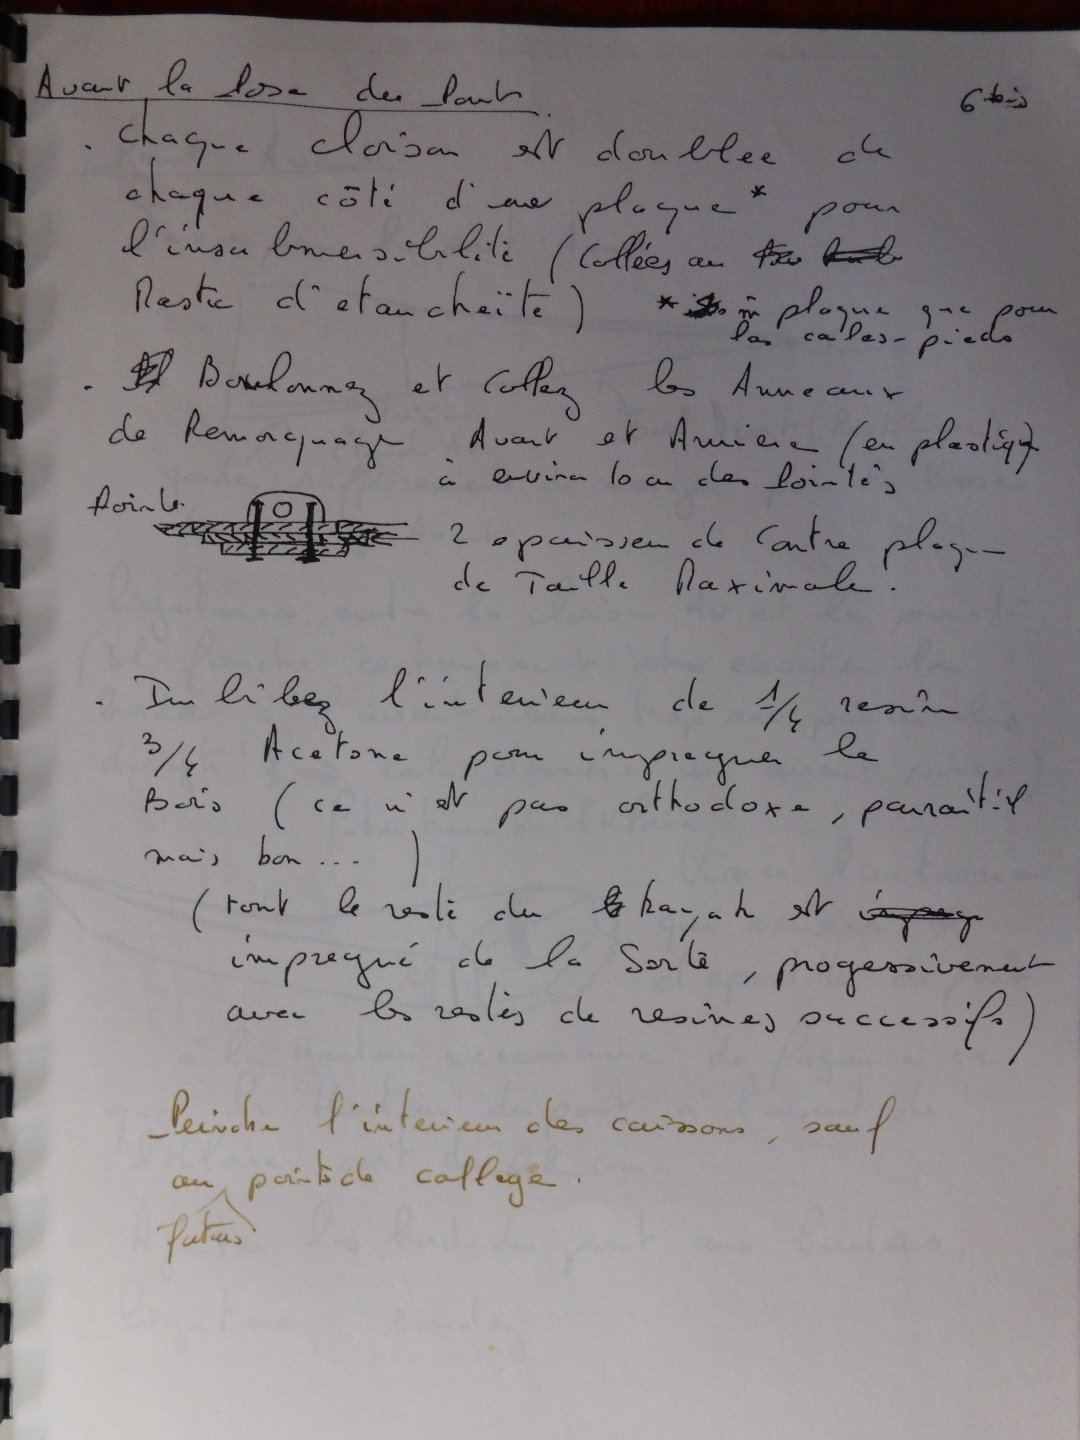 Avant la Pose du Pont.
6 bis
. Chaque cloison est doublee de
chaque côté d'une plaque* pour
l'insubmersibilité (Collées au
Mastic d'etancheïté)
* m̂ plaque que pour
les cales-pieds
. Boulonnez et Collez les Anneaux
de Remorquage Avant et Arriere (en plastique)
à environ 10 cm des Pointes
Pointe
2 epaisseur de Contre plaque
de Taille Maximale.
. Imbibez l'interieur de 1/4 resine
3/4 Acetone pour impregner le
Bois (ce n'est pas orthodoxe, parait-il
mais bon... )
(tout le reste du kayak est
impregné de la Sorte, progessivement
avec les restes de resines successifs)
Peindre l'interieur des caissons, sauf
au points de collage.
futurs